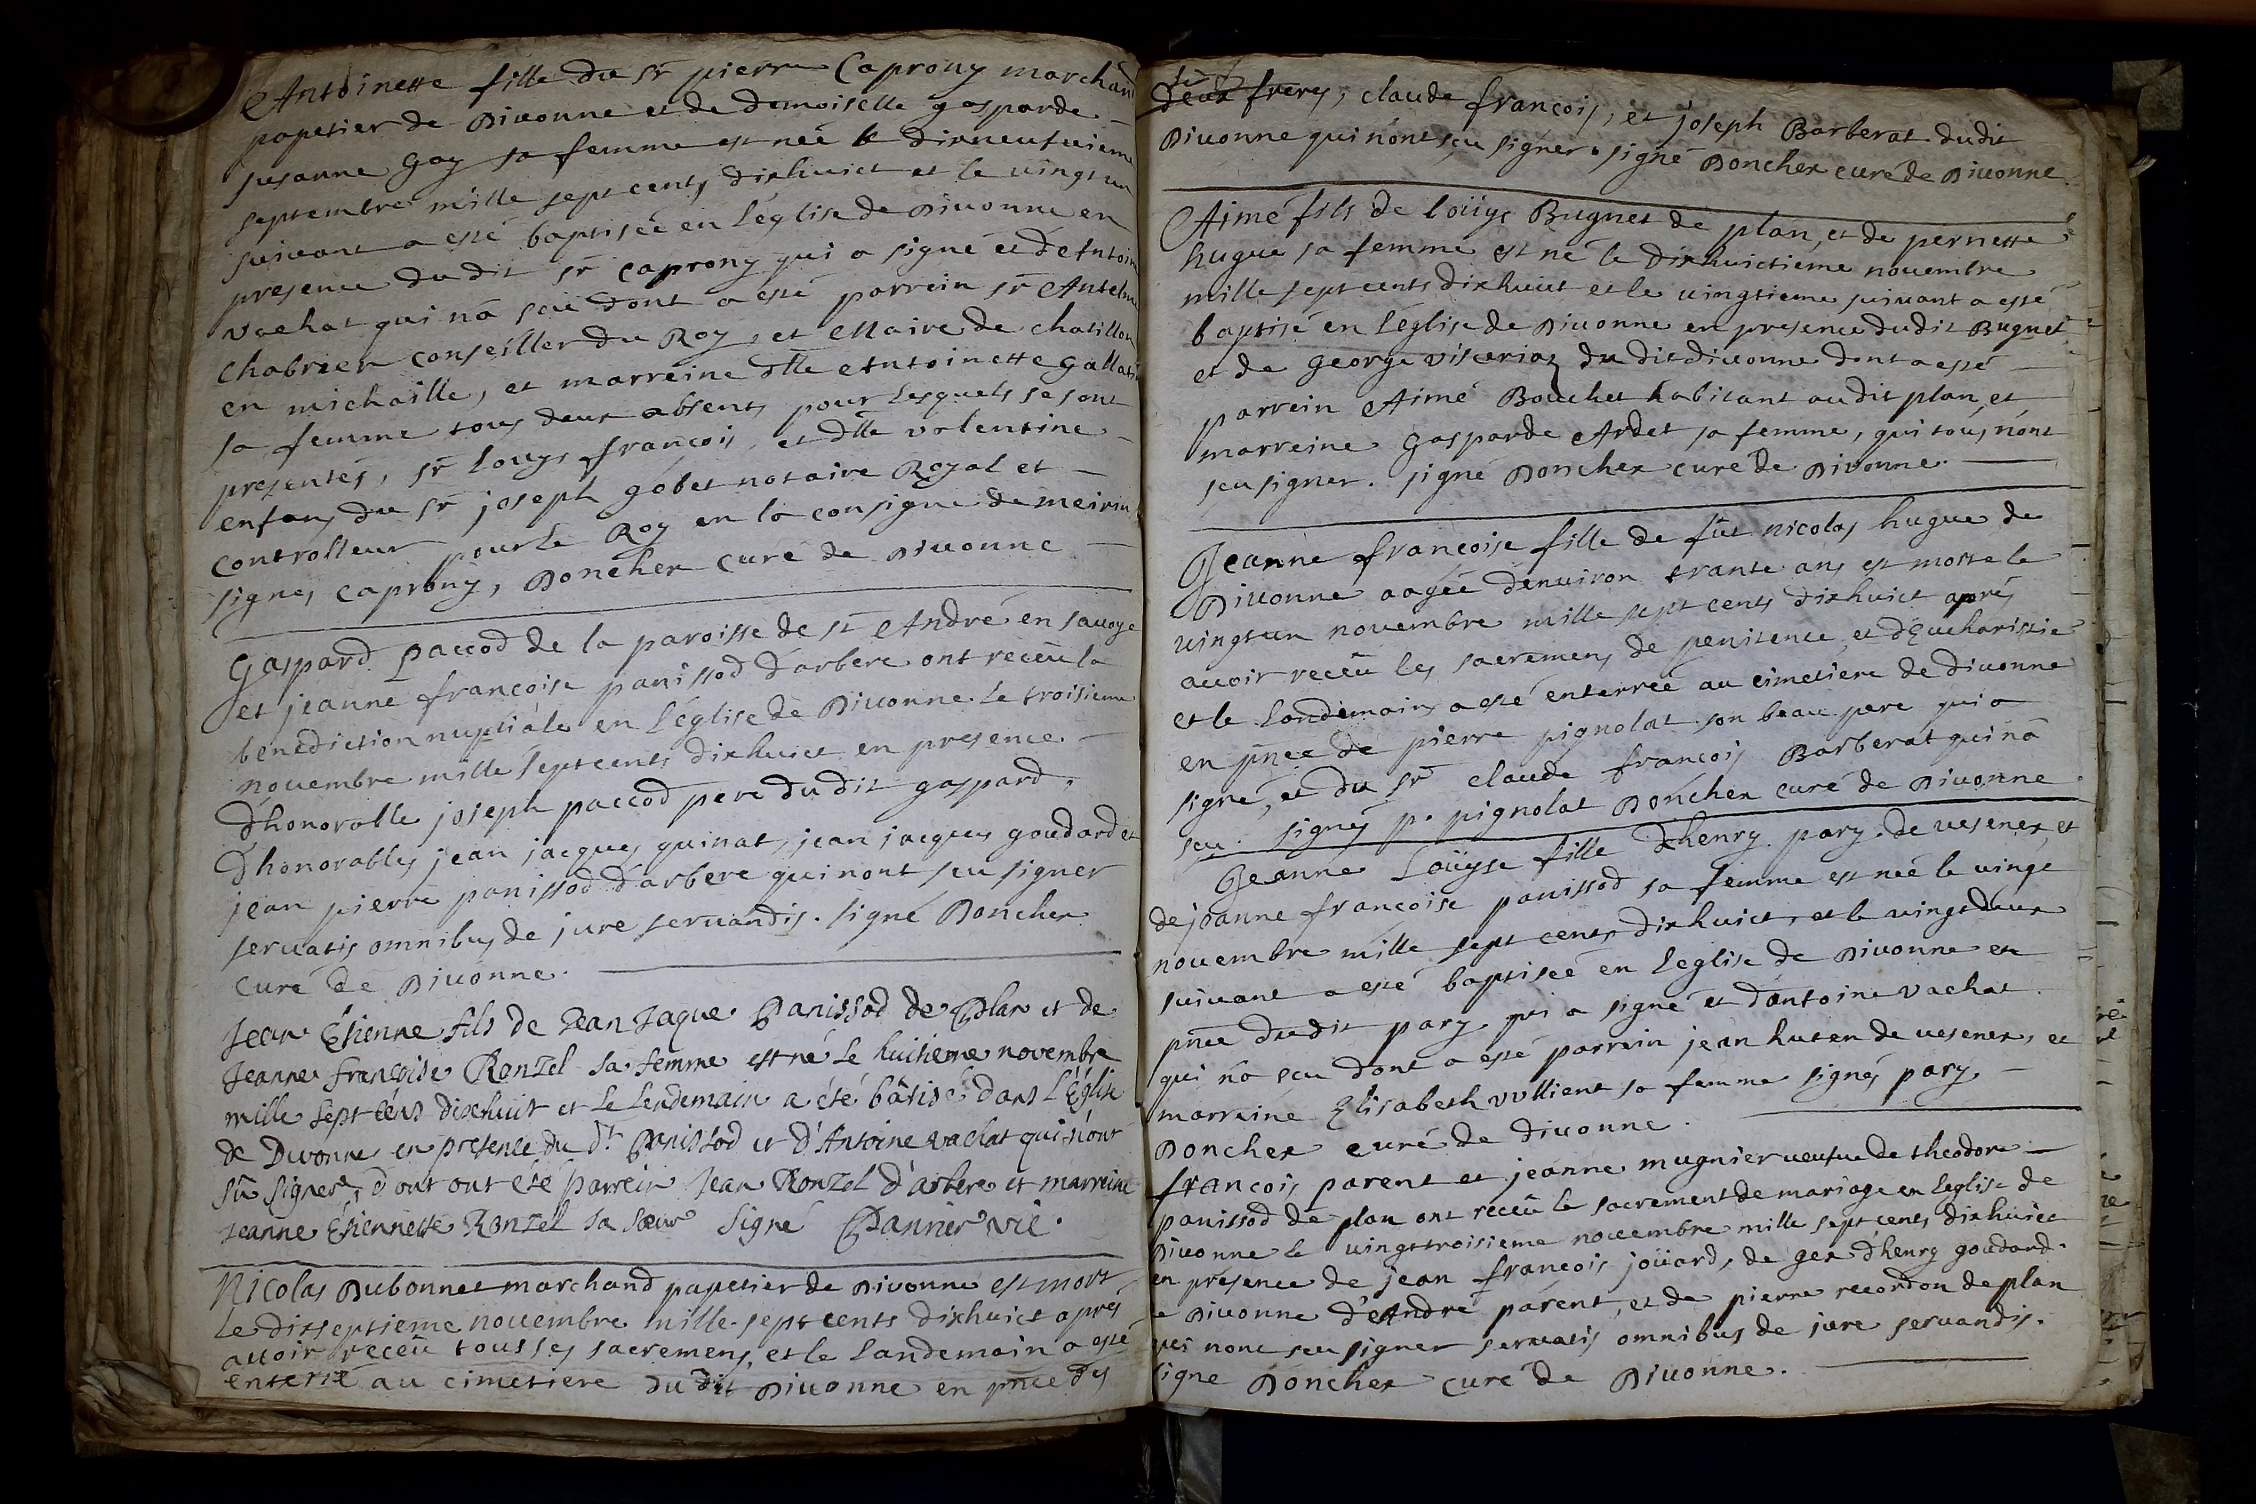 Antoinette fille du sr pierre Caprony marchand
papetier de Divonne et de demoiselle gasparde
susanne Gay sa femme est née le dixneufvieme
septembre mille sept cents dixhuict et le vingt un
suivant a esté baptisée en l'église de Divonne en
presence dudit sr Caprony qui a signé et d'Antoine
Vachat qui n'a sceu dont a esté parrein sr Antelme
Chabrier conseiller du Roy, et Maire de chatillon
en michaille, et marreine dlle Antoinette Gallatin
sa femme tous deux absents pour lesquels se sont
presentés, sr Louys françois, et dlle valentine
enfans du sr joseph gobet notaire Royal et
controlleur pour le Roy en la consigne de meirin
signés Caprony, Doncher curé de Divonne
Gaspard paccod de la paroisse de st André en savoye
et jeanne françoise panissod d'arbere ont receu la
benediction nuptiale en l'église de Divonne le troisieme
novembre mille sept cents dixhuict en presence
d'honorable joseph paccod pere dudit gaspard,
d'honorables jean jacques quinat, jean jacques goudard et
jean pierre panissod d'arbere qui n'ont sceu signer
servatis omnibus de jure servandis. signé Doncher
curé de Divonne.
Jean Étienne fils de Jean Jaque Panissod de Plan et de
Jeanne françoise Ronzel sa femme est né le huitieme novembre
mille sept cens dixhuit et le lendemain a été bâtisé dans l'Église
de Divonne en presence du dt Panissod et d'Antoine vachat qui n'ont
sû signer, dont ont été parrein Jean Ronzel d'arbere et marreine
Jeanne Étiennette Ronzel sa sœur Signé Pannier vic.
Nicolas Dubonnet marchand papetier de Divonne est mort
le dixseptieme novembre mille sept cents dixhuict apres
avoir receu tous ses sacremens, et le landemain a esté
enterré au cimetiere du dit Divonne en pnce des
deux freres, claude françois, et joseph Barberat dudit
Divonne qui n'ont sçu signer signé Doncher curé de Divonne.
Aimé fils de loüys Bugnet de plan, et de pernette
hugue sa femme est né le dixhuictieme novembre
mille sept cents dixhuict et le vingtieme suivant a esté
baptisé en l'église de Divonne en presence dudit Bugnet
et de george viscerias du dit divonne dont a esté
parrein Aimé Bouchet habitant audit plan, et
marreine Gasparde Ardet sa femme, qui tous n'ont
sceu signer. signé Doncher curé de Divonne.
Jeanne françoise fille de fût nicolas hugue de
Divonne aagée d'enuiron trante ans est morte le
vingt un novembre mille sept cents dixhuict aprés
avoir receu les sacremens de penitence, et d'Eucharistie
et le landemain a esté enterrée au cimetiere de divonne
en pnce de pierre pignolat son beau pere qui a
signé, et du sr claude françois Barberat qui n'a
sceu. signés p. pignolat Doncher curé de Divonne
Jeanne Loüyse fille d'henry pary de vesenex, et
de jeanne françoise panissod sa femme est née le vingt
novembre mille sept cents dixhuict, et le vingt deux
suivant a esté baptisée en l'eglise de Divonne en
pnce dudit pary qui a signé et d'antoine vachat
qui n'a sceu dont a esté parrein jean huten de vesenex, et
marreine Elisabeth vullient sa femme signés pary,
Doncher curé de divonne.
françois parent et jeanne mugnier veufue de theodore
panissod de plan ont receu le sacrement de mariage en l'eglise de
Divonne le vingt troisieme novembre mille sept cents dixhuict
en présence de jean françois joüard, de gex d'henry goudard
e Divonne d'André parent, et de pierre recordon de plan
qui n'ont sceu signer servatis omnibus de jure servandis.
signé Doncher curé de Divonne.